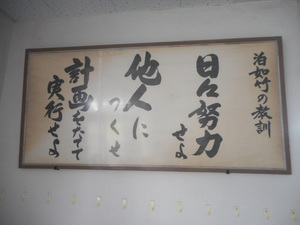 泊如竹の教訓
日々努力
せよ
他人に
つくせ
計画をたてて
実行せよ